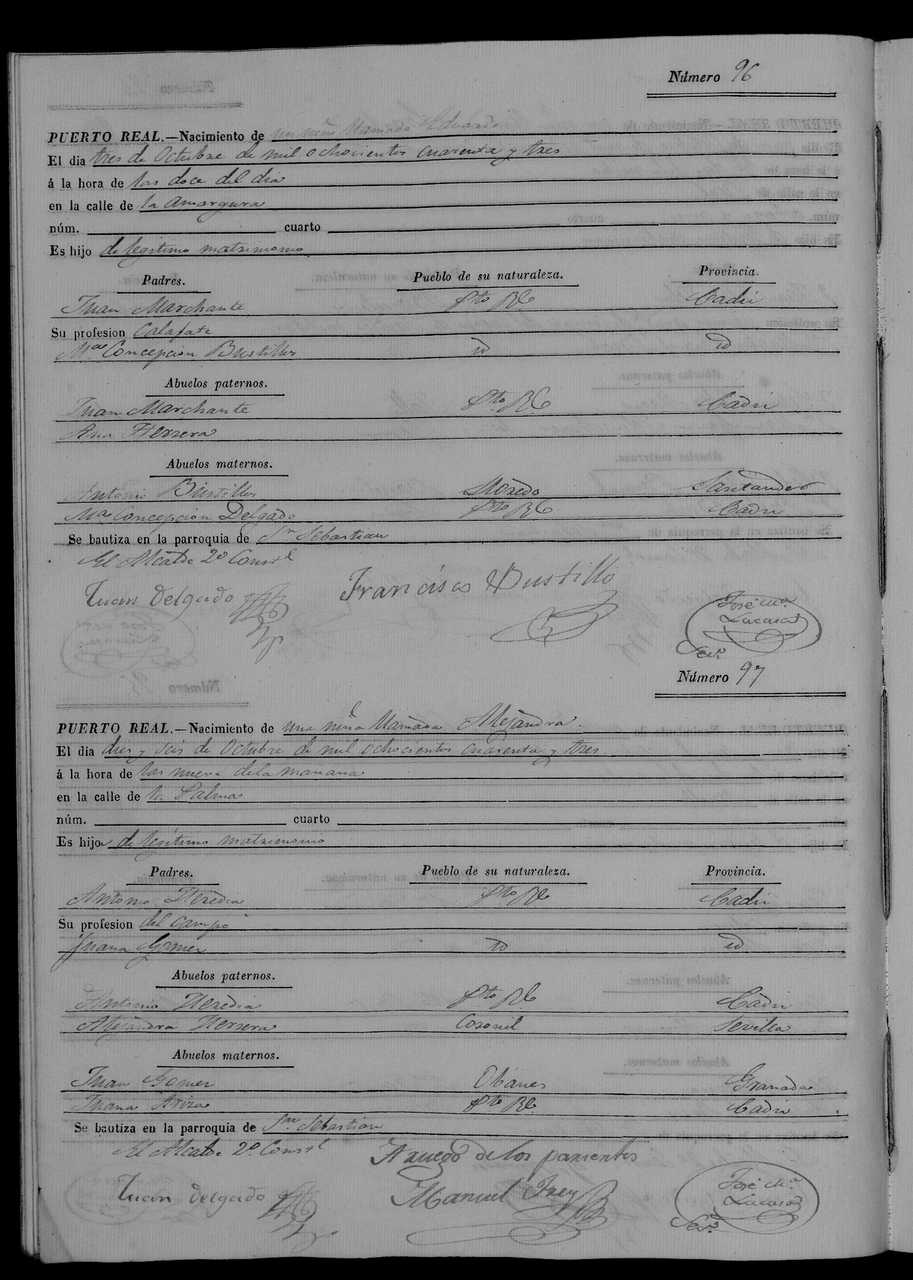 Número 96
PUERTO REAL.—Nacimiento de un niño llamado Eduardo
El dia tres de Octubre de mil ochocientos cuarenta y tres
á la hora de las doce del dia
en la calle de la Amargura
núm. cuarto
Es hijo de legitimo matrimonio
Padres. Pueblo de su naturaleza. Provincia.
Juan Marchante Pto Rl Cadiz
Su profesion Calafate
Ma Concepcion Bustillo id id
Abuelos paternos.
Juan Marchante Pto Rl Cadiz
Ana Herrera
Abuelos maternos.
Antonio Bustillo Santander
Ma Concepcion Delgado Pto Rl Cadiz
Se bautiza en la parroquia de Sn Sebastian
El Alcalde 2o Consl
Juan Delgado Francisco Bustillo José Ma Lucasa
Seco
Número 97
PUERTO REAL.—Nacimiento de una niña llamada Alejandra.
El dia dies y seis de Octubre de mil ochocientos cuarenta y tres
á la hora de las nueve de la mañana
en la calle de la Palma
núm. cuarto
Es hijo de legitimo matrimonio
Padres. Pueblo de su naturaleza. Provincia.
Antonio Heredia Pto Rl Cadiz
Su profesion del campo
Juana Gomez id id
Abuelos paternos.
Antonio Heredia Pto Rl Cadiz
Alejandra Herrera Coronil Sevilla
Abuelos maternos.
Juan Gomez Ohanes Granada
Juana Ariza Pto Rl Cadiz
Se bautiza en la parroquia de Sn Sebastian
El Alcalde 2o Consl A ruego de los parientes
Juan Delgado Manuel Frey José Ma Lucasa
Seco